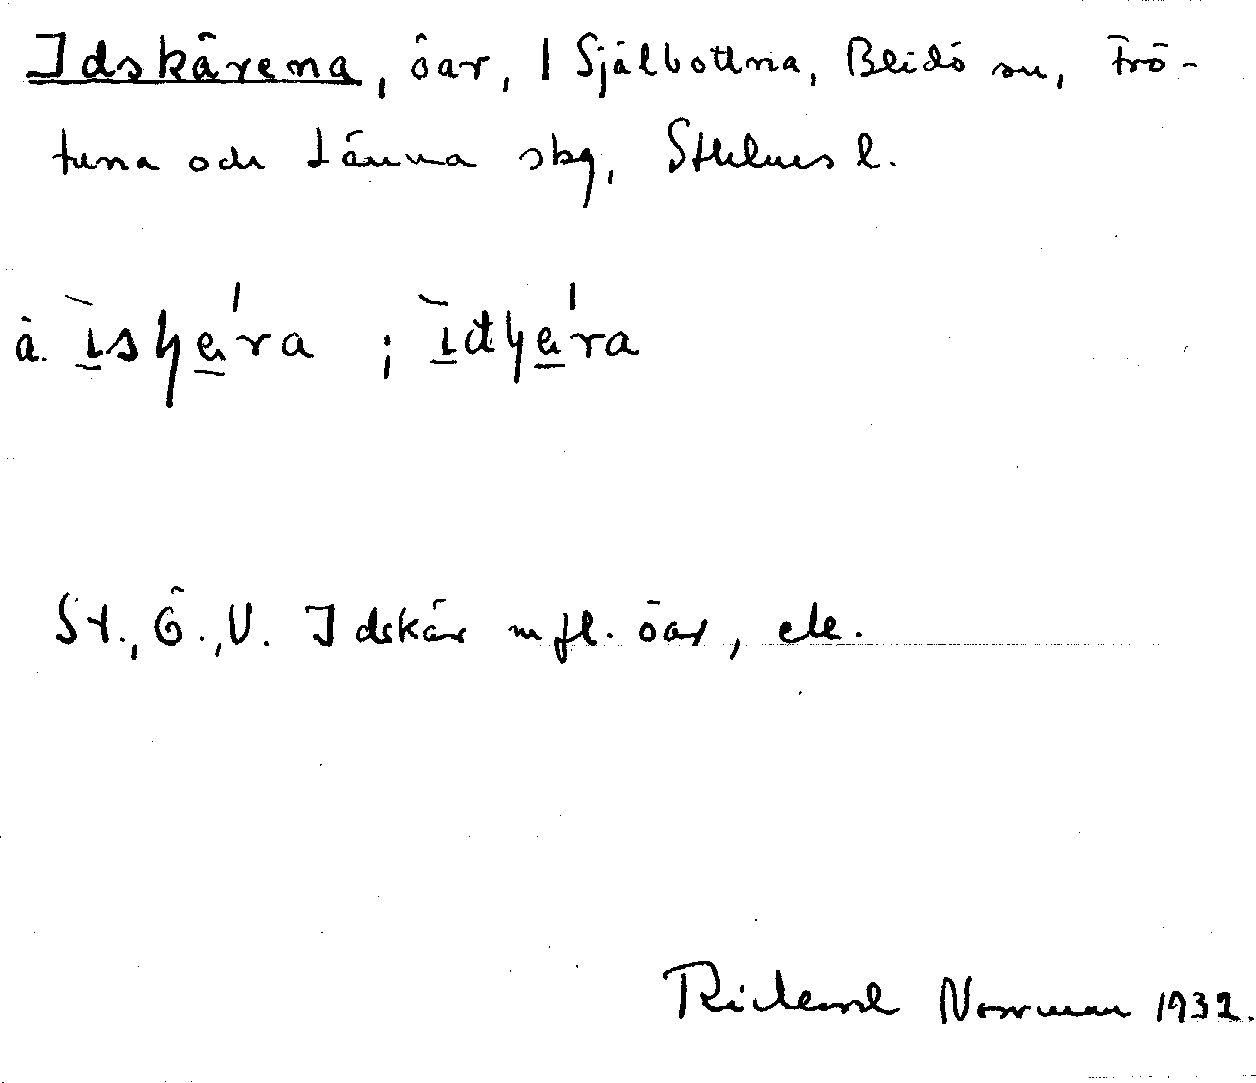 Idskärena, öar, 1 Själbottna, Blidö sn, Frö-
tuna och Länna skg, Sthlms l.
St., Ö., V. Idskär m fl. öar, ek.
Rickard Norrman 1932.